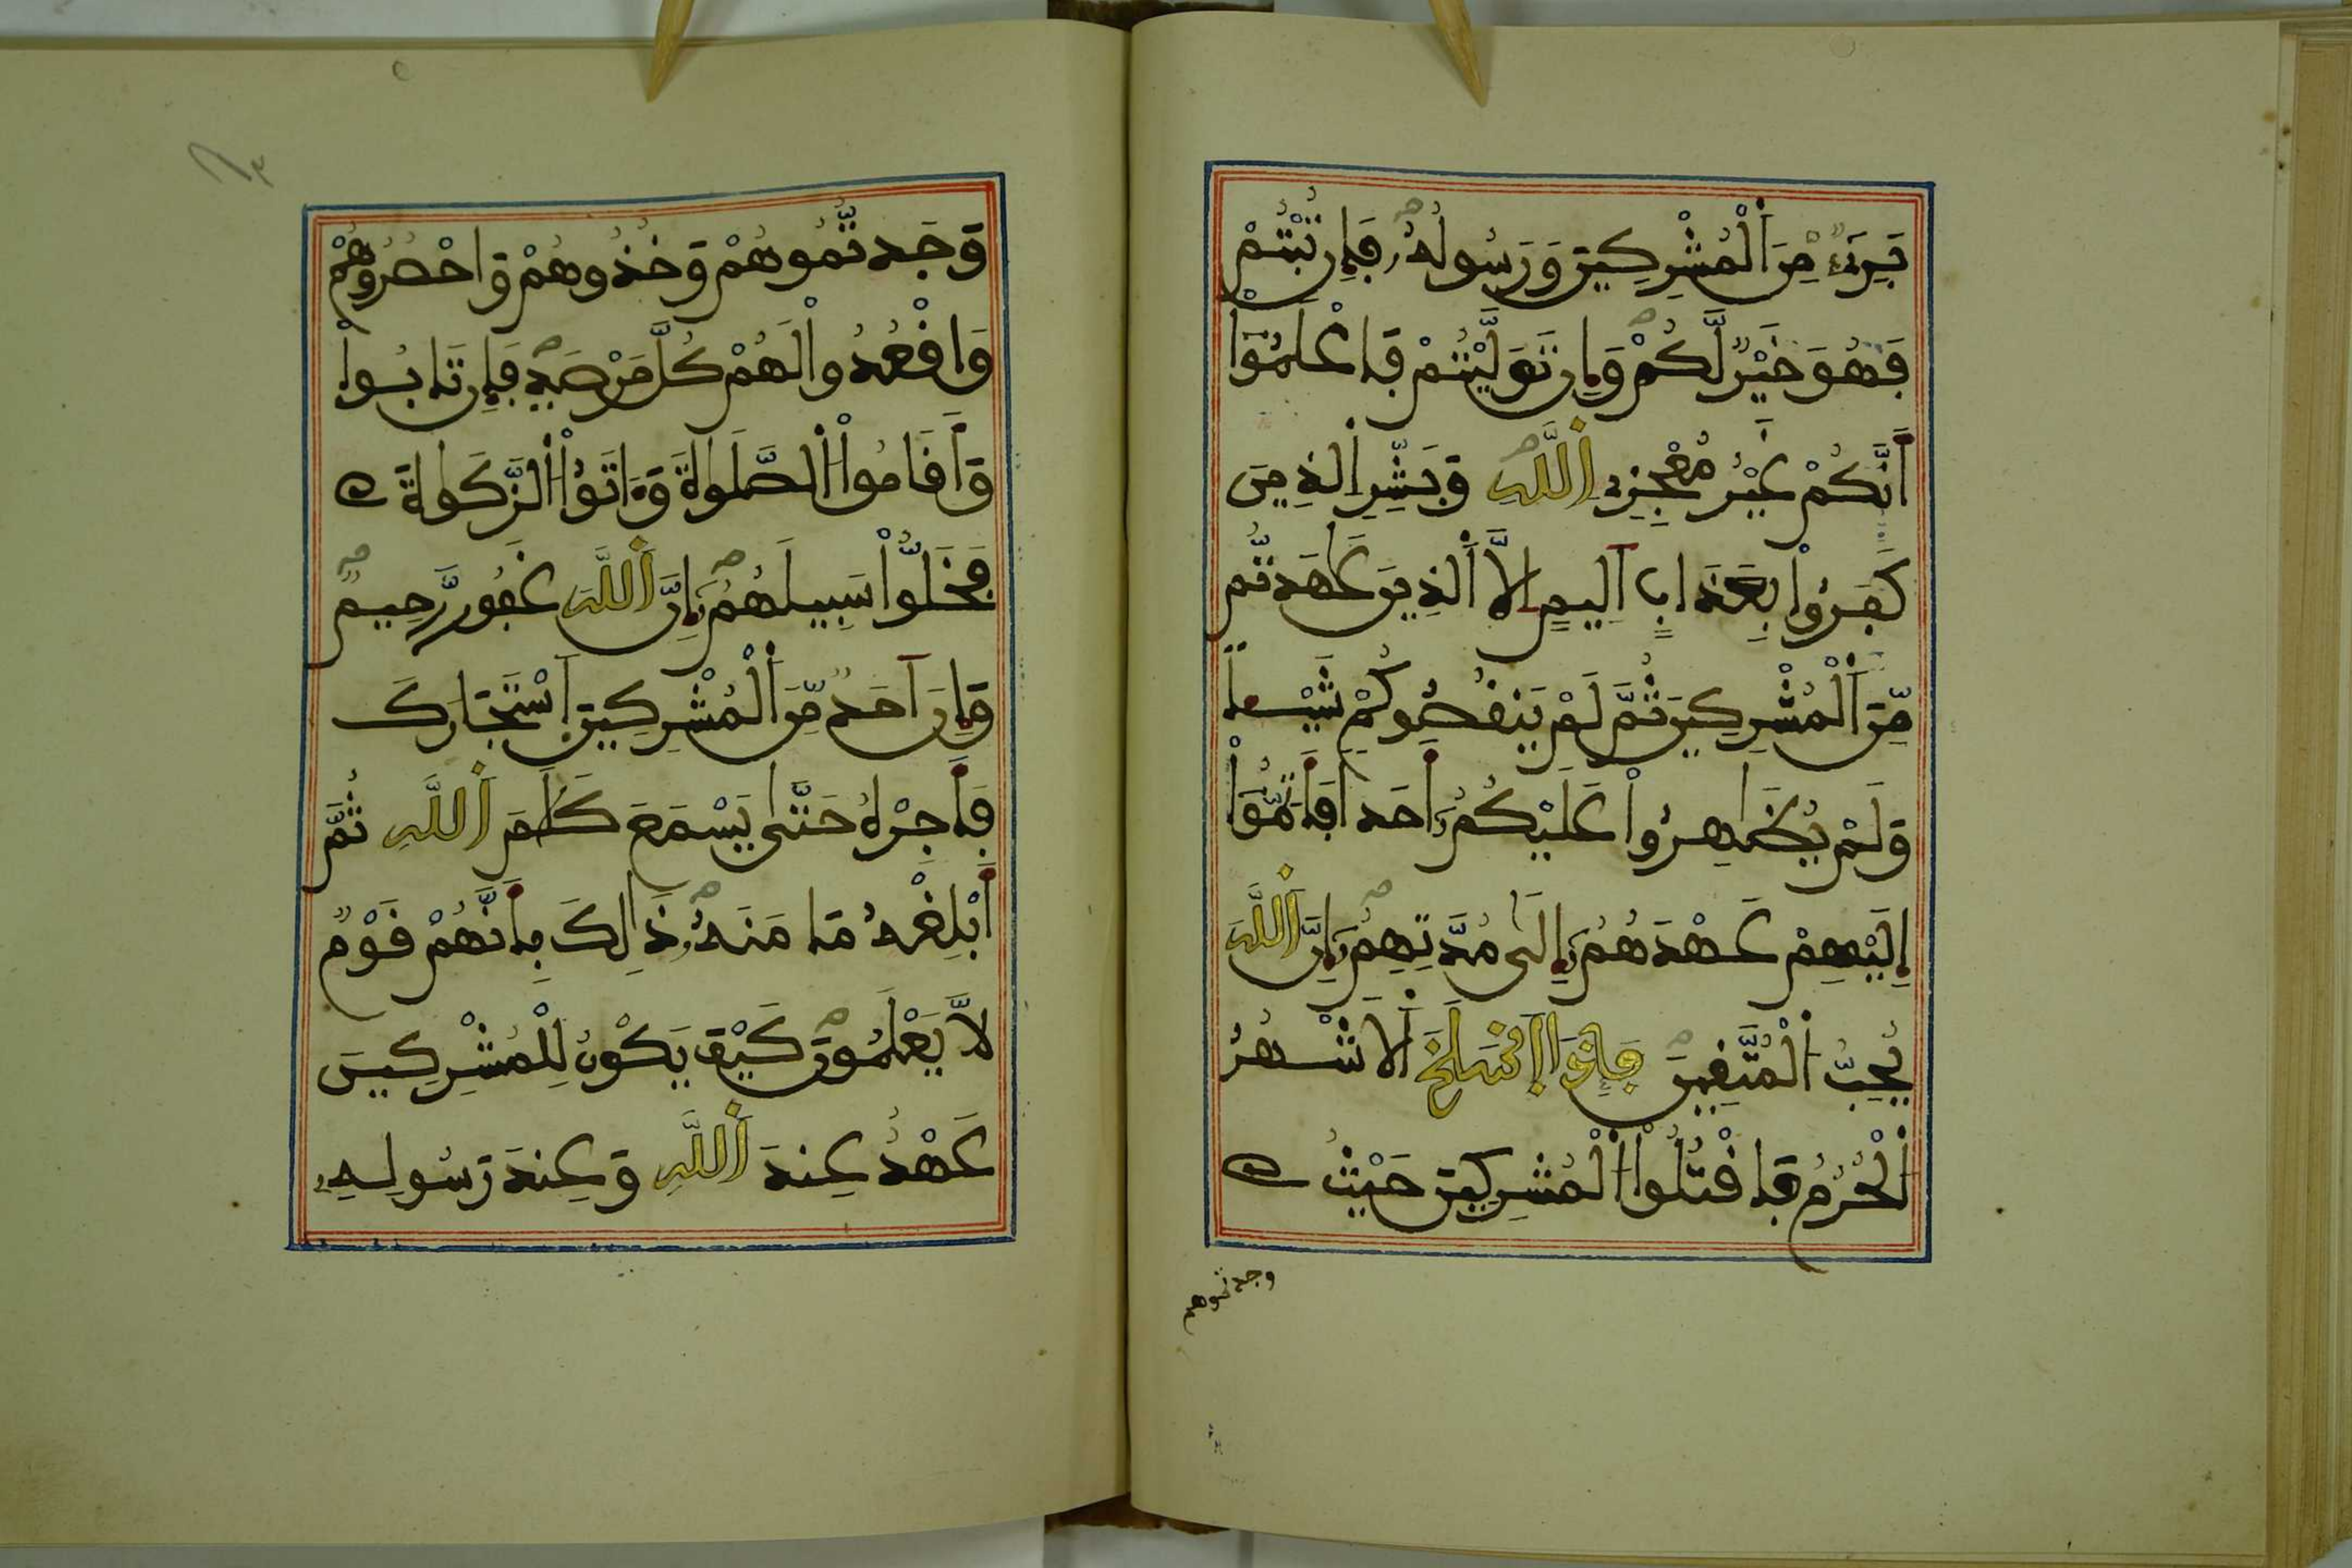 بَرِےٓءٌ مِّنَ اَ۬لْمُشْرِكِينَ وَرَسُولُهُۥ فَإِن تُبْتُمْ
فَهُوَ خَيْرٌ لَّكُمْ وَإِن تَوَلَّيْتُمْ فَاعْلَمُوٓاْ
أَنَّكُمْ غَيْرُ مُعْجِزِے اِ۬للَّهِ وَبَشِّرِ اِ۬لذِينَ
كَفَرُواْ بِعَذَابٍ اَلِيمٍ اِلَّا اَ۬لذِينَ عَٰهَدتُّم
مِّنَ اَ۬لْمُشْرِكِينَ ثُمَّ لَمْ يَنقُصُوكُمْ شَيْـٔاً
وَلَمْ يُظَٰهِرُواْ عَلَيْكُمُۥٓ أَحَداً فَأَتِمُّوٓاْ
إِلَيْهِمْ عَهْدَهُمُۥٓ إِلَىٰ مُدَّتِهِمُۥٓ إِنَّ اَ۬للَّهَ
يُحِبُّ اُ۬لْمُتَّقِينَ فَإِذَا اَ۪نسَلَخَ اَ۬لَاشْهُرُ
اُ۬لْحُرُمُ فَاقْتُلُواْ اُ۬لْمُشْرِكِينَ حَيْثُ
وجدتموهم
وَجَدتُّمُوهُمْ وَخُذُوهُمْ وَاحْصُرُوهُمْ
وَاقْعُدُواْ لَهُمْ كُلَّ مَرْصَدٍ فَإِن تَابُواْ
وَأَقَامُواْ اُ۬لصَّلَوٰةَ وَءَاتَوُاْ اُ۬لزَّكَوٰةَ
فَخَلُّواْ سَبِيلَهُمُۥٓ إِنَّ اَ۬للَّهَ غَفُورٌ رَّحِيمٌ
وَإِنَ اَحَدٌ مِّنَ اَ۬لْمُشْرِكِينَ اَ۪سْتَجَارَكَ
فَأَجِرْهُ حَتَّىٰ يَسْمَعَ كَلَٰمَ اَ۬للَّهِ ثُمَّ
أَبْلِغْهُ مَامَنَهُۥ ذَٰلِكَ بِأَنَّهُمْ قَوْمٌ
لَّا يَعْلَمُونَ كَيْفَ يَكُونُ لِلْمُشْرِكِينَ
عَهْدٌ عِندَ اَ۬للَّهِ وَعِندَ رَسُولِهِۦٓ